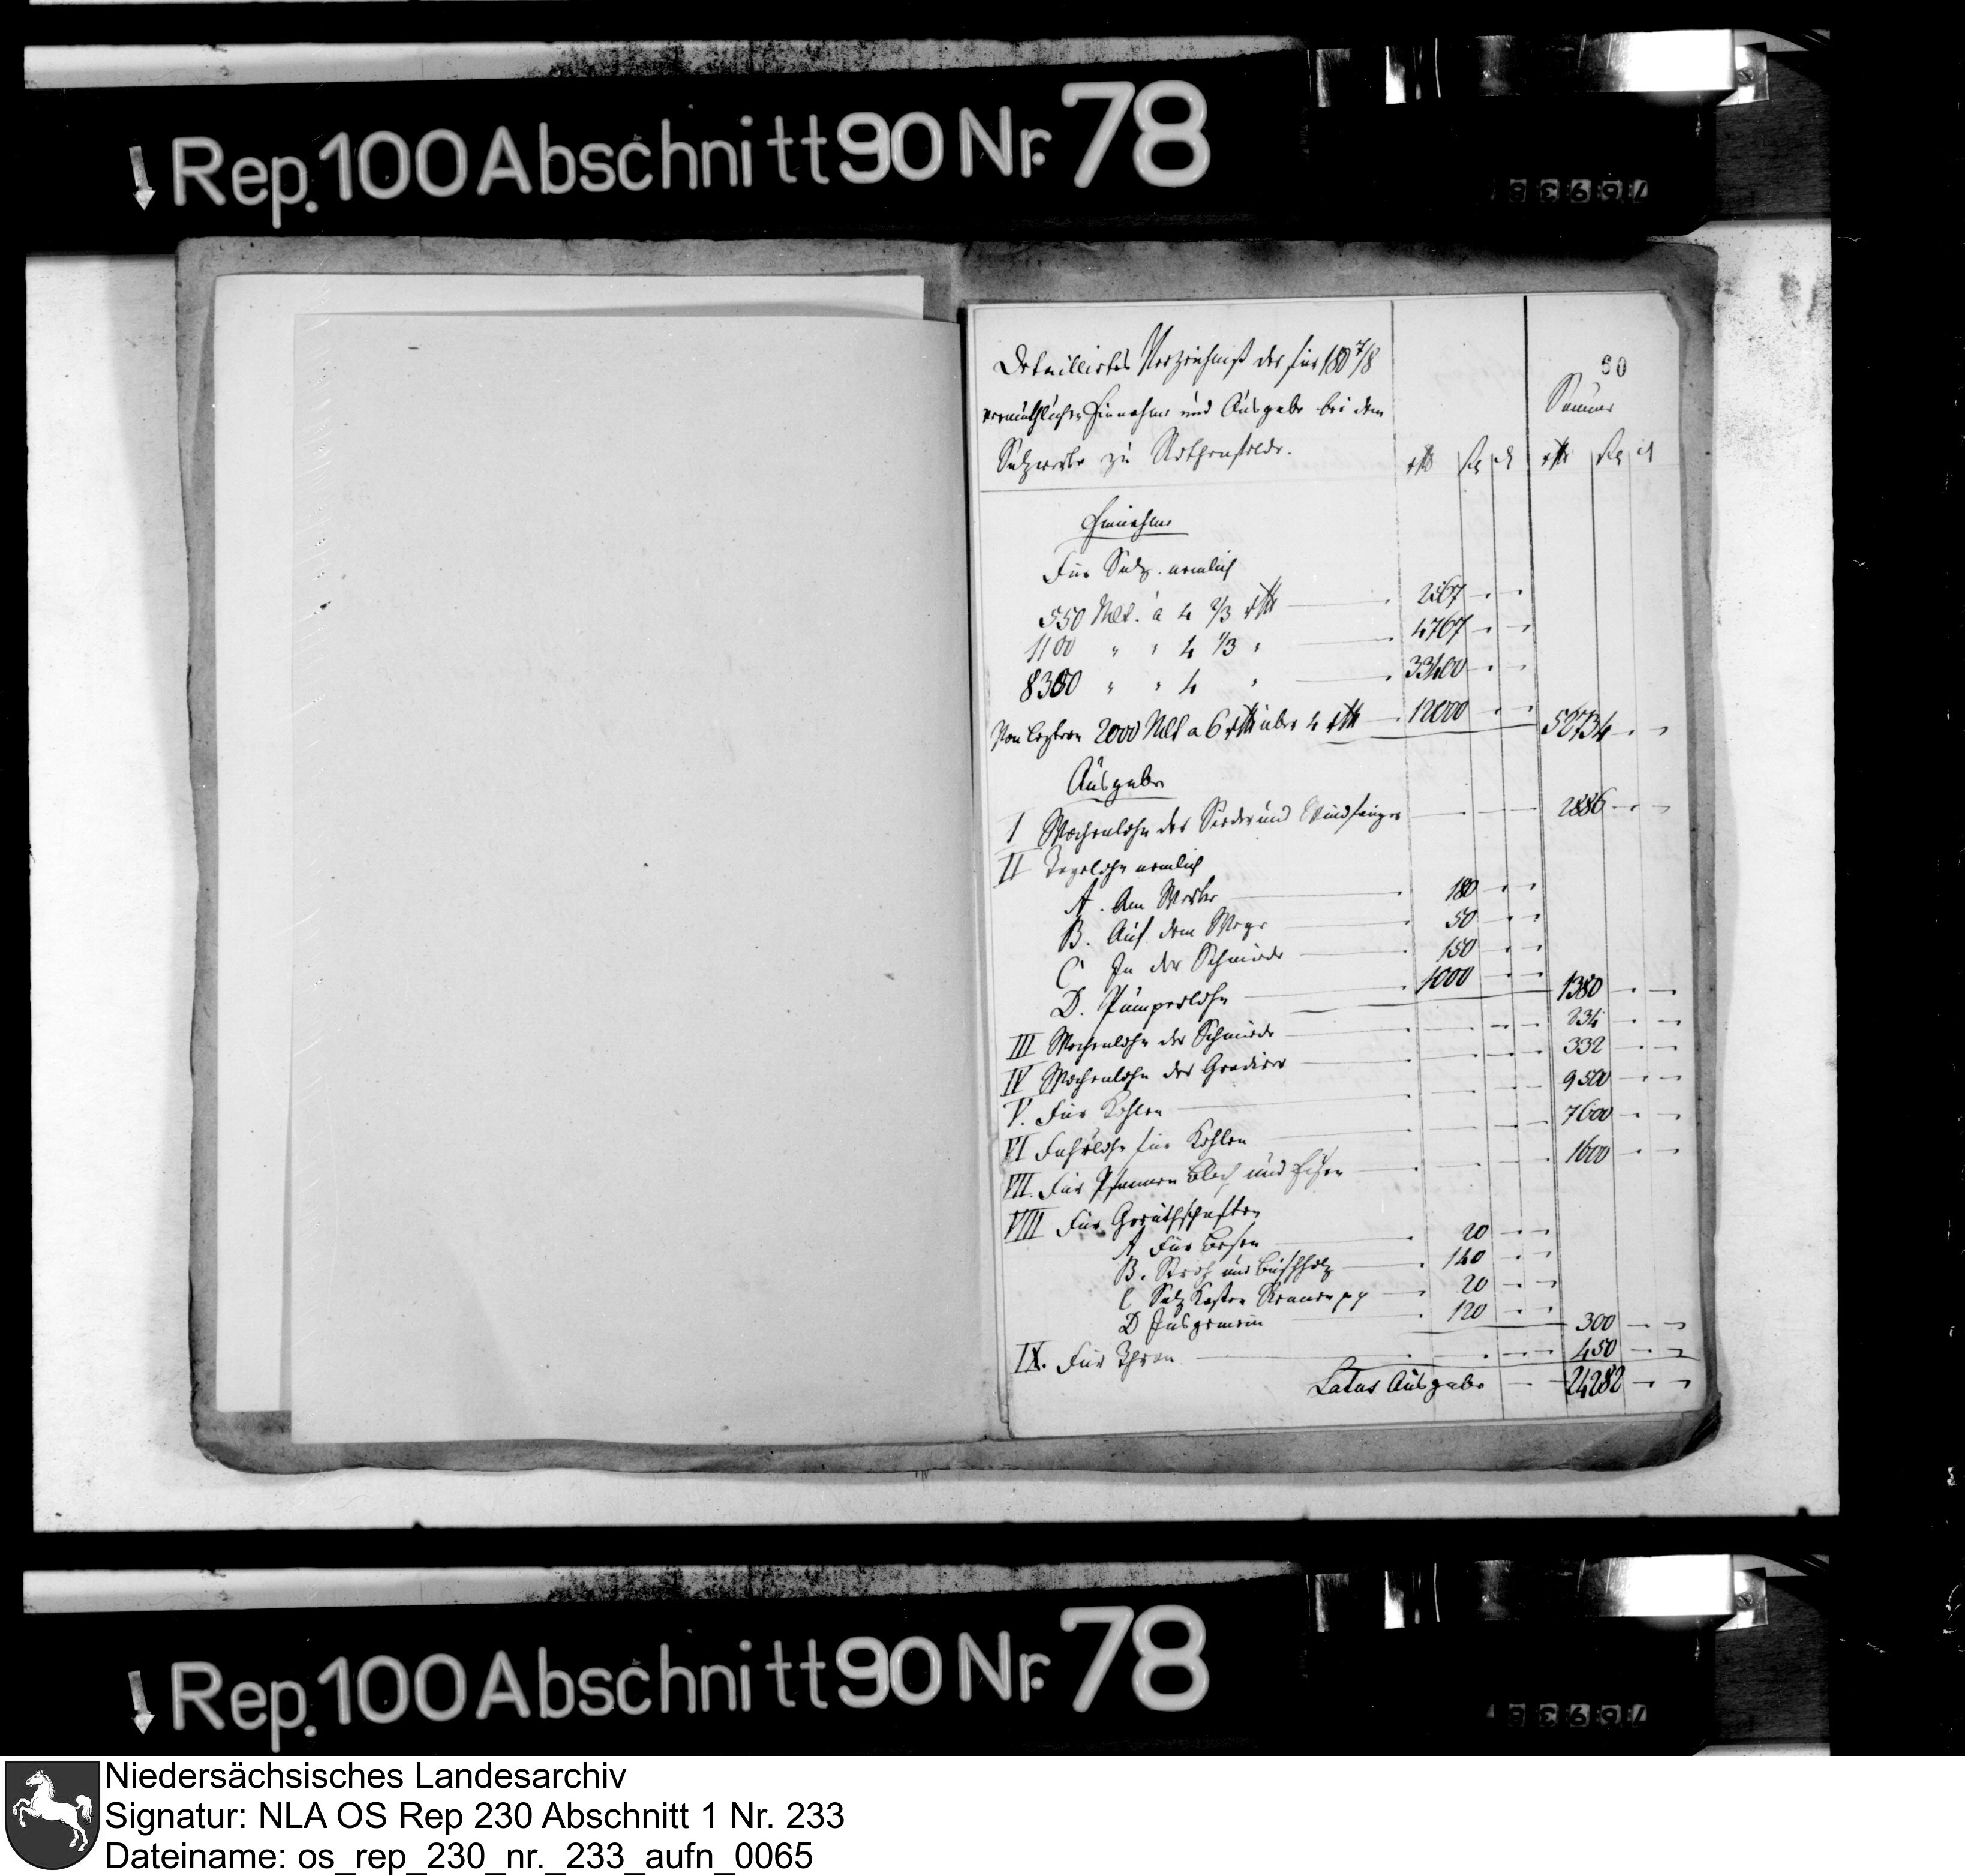 Rep. 100 Abschnitt 90 Nr. 78
50
Detaillirtes Verzeichniß der für 180 7/8
vermuthlichen Einnahme und Ausgabe bei dem
Salzwerke zu Rothenfelde.
Summa
rthl ß d rthl ß d
Einnahme
Für Salz nemlich
550 Mlt. a 4 2/3 rthl — 2567 " "
1100 " " 4 1/3 " — 4767 " "
8350 " " 4 " — 33400 " "
Von letztern 2000 Mlt a 6 rthl über 4 rthl — 12000 " " 52734 " "
Ausgabe
I Wochenlohn der Sieder und Windfänger — 2886 " "
II Tagelohn nemlich
A. Am Werke — 180 " "
B. Auf dem Wege — 50 " "
C In der Schmiede — 150 " "
D. Pumperlohn — 1000 " " 1380 " "
III Wochenlohn der Schmiede — 234 " "
IV Wochenlohn der Gradirer — 332 " "
V. Für Kohlen — 9500 " "
VI Fuhrlohn für Kohlen — 7600 " "
VII. Für Pfannen Blech und Eisen — 1600 " "
VIII Für Geräthschaften
A Für Besen — 20 " "
B. Stroh und Buschholz — 140 " "
C Salz Kasten pp — 20 " "
D Insgemein — 120 " " 300 " "
IX. Für Thran — 450 " "
Latus Ausgabe — 24282 " "
Rep. 100 Abschnitt 90 Nr. 78
Niedersächsisches Landesarchiv
Signatur: NLA OS Rep 230 Abschnitt 1 Nr. 233
Dateiname: os_rep_230_nr._233_aufn_0065